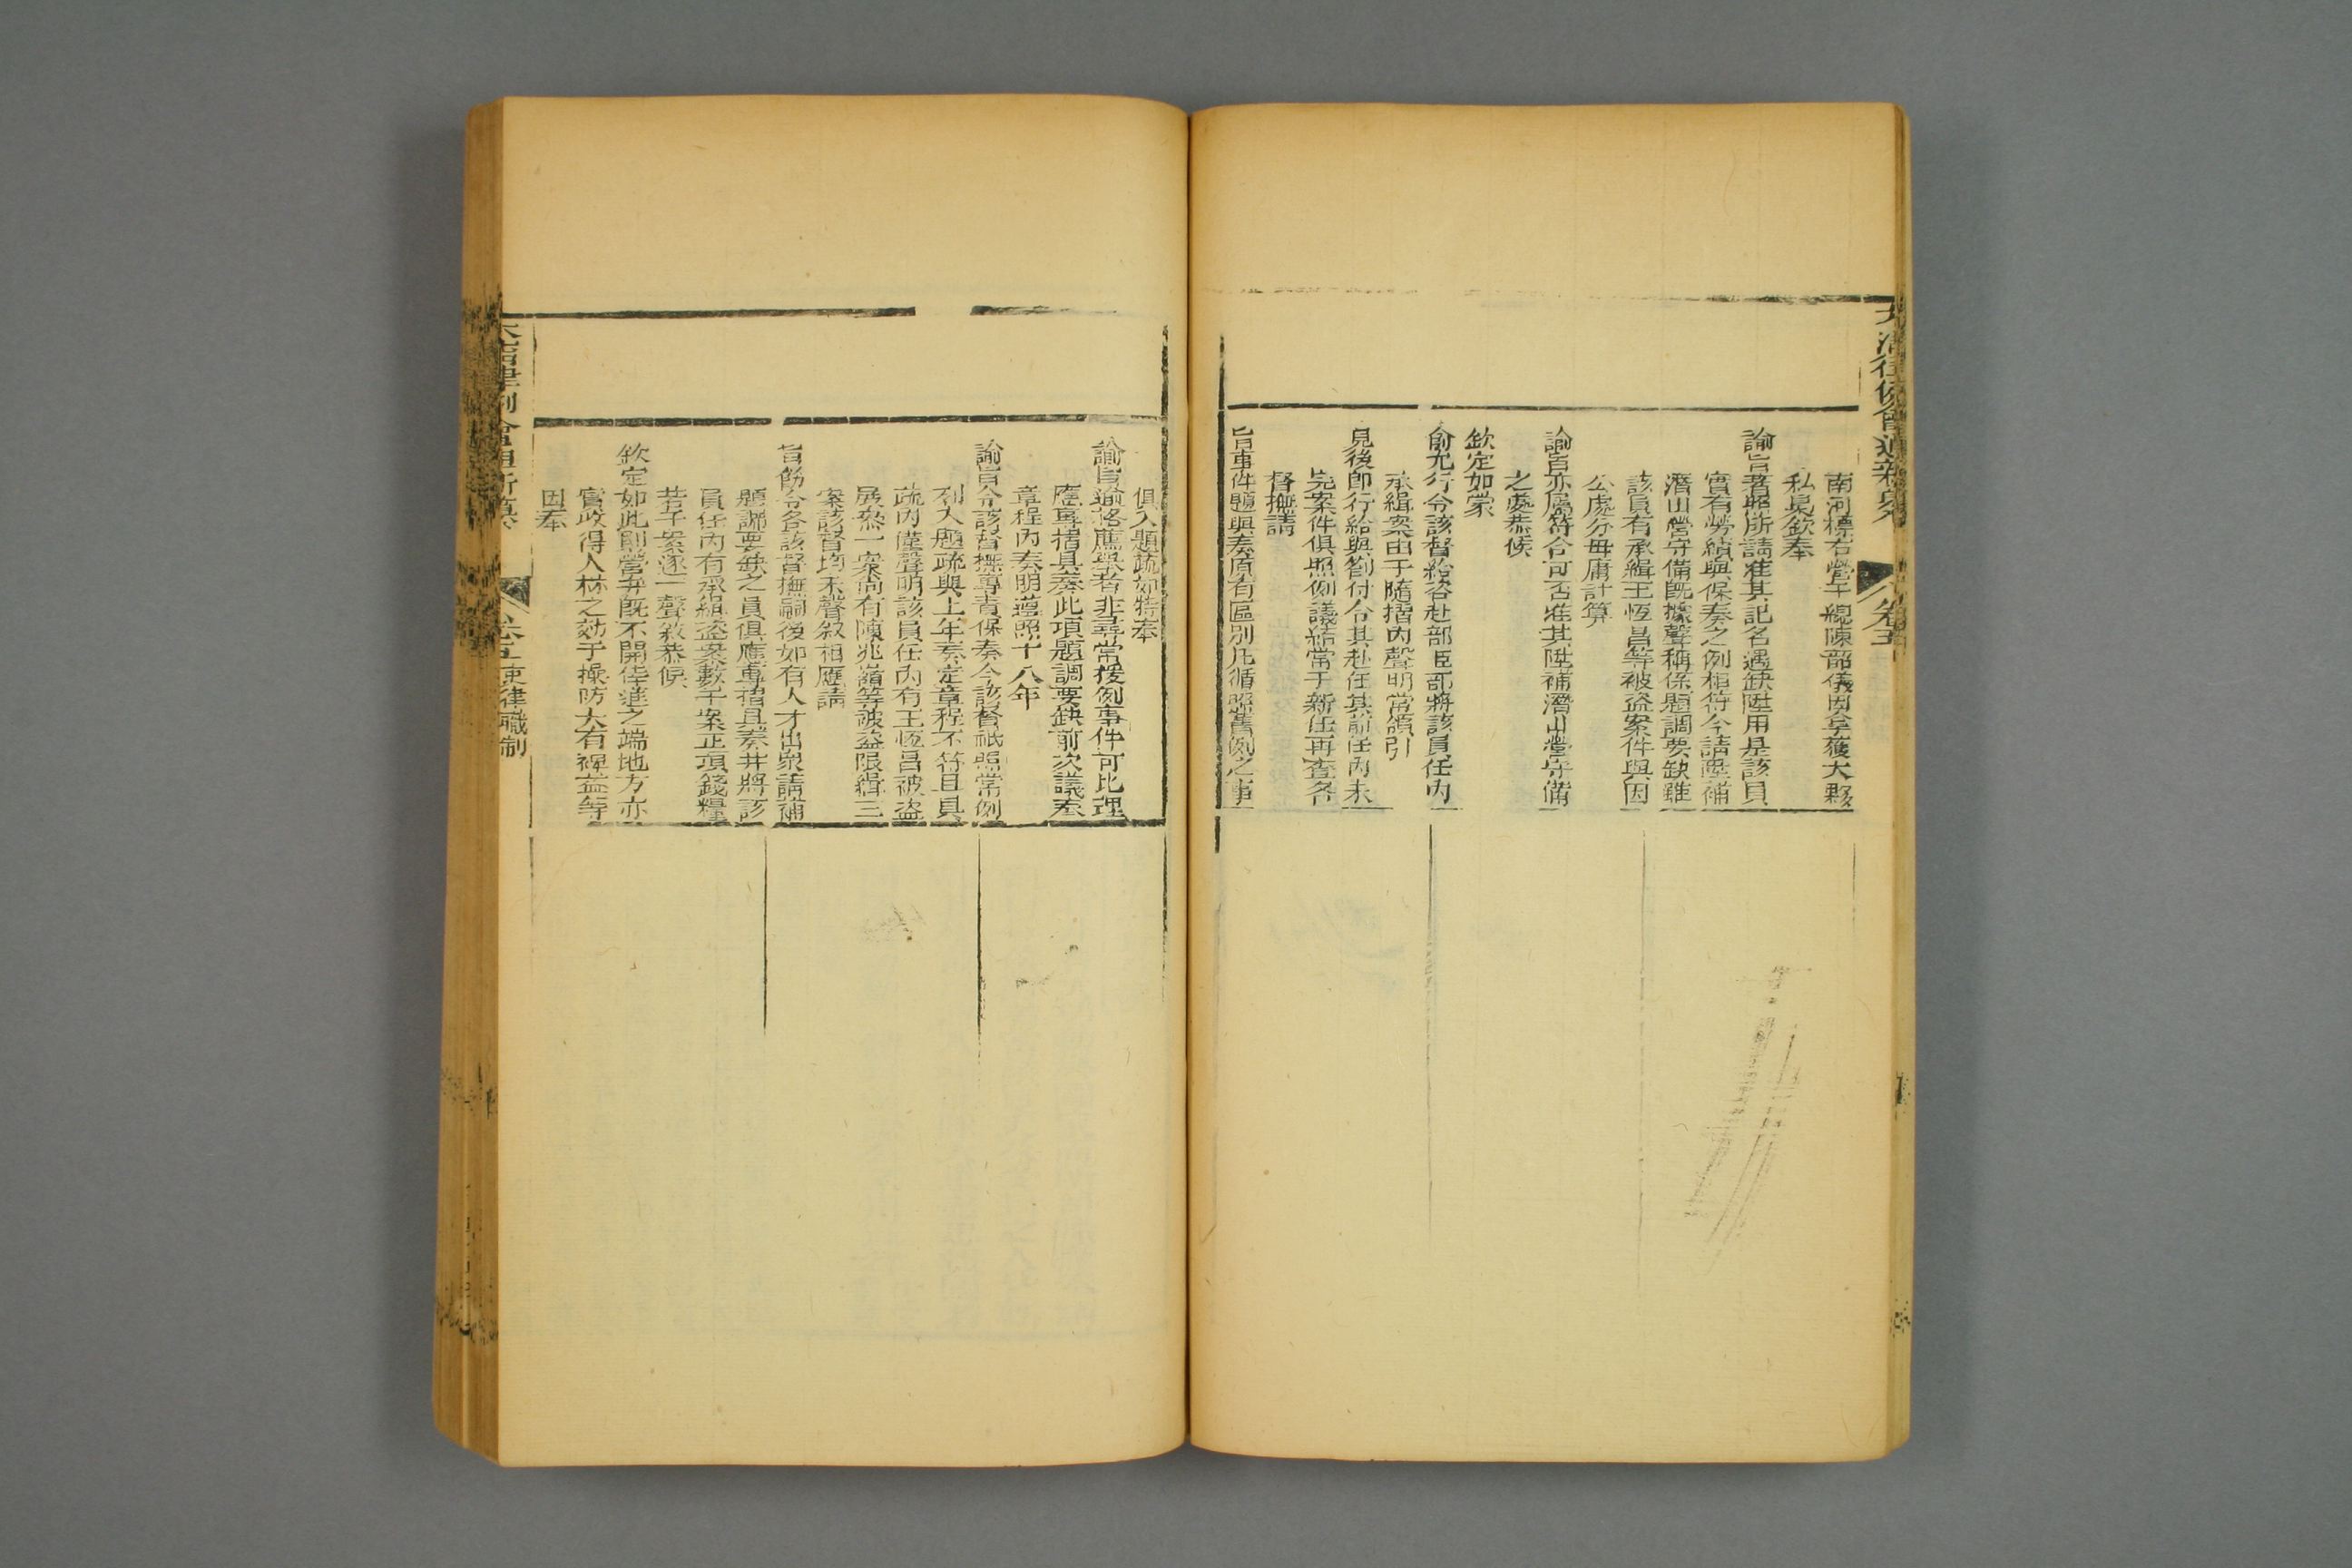 大清律例會通新纂
卷五
南河標右營千總陳韶儀因拿獲大夥
私梟欽奉
諭旨著照所請准其記名遇缺陞用是該員
實有勞績與保奏之例相符今請陞補
潛山營守備既據聲稱係題調要缺雖
該員有承緝王恆昌等被盜案件與因
公處分毋庸計算
諭旨亦屬符合可否准其陞補潛山營守備
之處恭候
欽定如蒙
俞允行令該督給咨赴部臣部將該員任內
承緝案由于隨摺內聲明帶領引
見後即行給與劄付令其赴任其前任內未
完案件俱照例議結當于新任再查各
督撫請
旨事件題與奏原有區別凡循照舊例之事
俱入題疏如特奉
諭旨逾格薦舉者非尋常援例事件可比理
應專摺具奏此項題調要缺前次議奏
章程內奏明遵照十八年
諭旨令該督撫專責保奏今該督祇照常例
列入題疏與上年奏定章程不符且具
疏內僅聲明該員任內有王恆昌被盜
展叅一案尚有陳兆嶺等被盜限緝三
案該督均未聲敘相應請
旨飭令各該督撫嗣後如有人才出眾請補
題調要缺之員俱應專摺具奏并將該
員任內有承緝盜案數千案正項錢糧
若干案逐一聲敘恭候
欽定如此則營弁既不開倖進之端地方亦
實收得人材之効于操防大有裨益等
因奉
大清律例會通新纂
卷五吏律職制